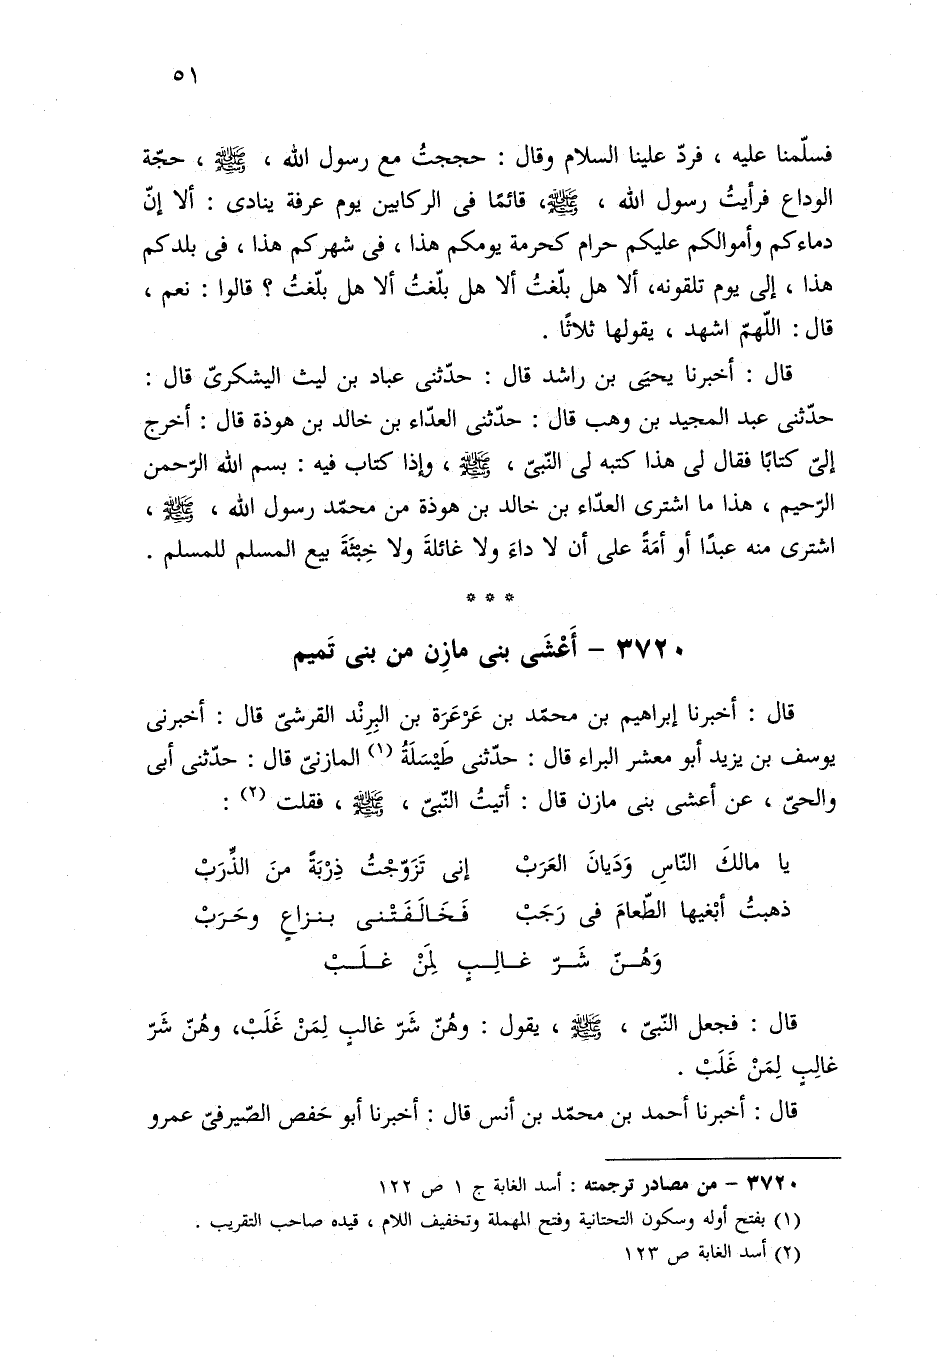 ٥١
فسلّمنا عليه ، فردّ علينا السلام وقال : حججتُ مع رسول الله ، ﷺ ، حجّة
الوداع فرأيتُ رسول الله ، ﷺ، قائمًا فى الركابين يوم عرفة ينادى : ألا إنّ
دماءكم وأموالكم عليكم حرام كحرمة يومكم هذا ، فى شهركم هذا ، فى بلدكم
هذا ، إلى يوم تلقونه، ألا هل بلّغتُ ألا هل بلّغتُ ألا هل بلّغتُ ؟ قالوا : نعم ،
قال : اللّهمّ اشهد ، يقولها ثلاثًا .
قال : أخبرنا يحيَى بن راشد قال : حدّثنى عباد بن ليث اليشكرىّ قال :
حدّثنى عبد المجيد بن وهب قال : حدّثنى العدّاء بن خالد بن هوذة قال : أخرج
إلىّ كتابًا فقال لى هذا كتبه لى النّبىّ ، ﷺ ، وإذا كتاب فيه : بسم الله الرّحمن
الرّحيم ، هذا ما اشترى العدّاء بن خالد بن هوذة من محمّد رسول الله ، ﷺ ،
اشترى منه عبدًا أو أمَةً على أن لا داءَ ولا غائلةَ ولا خِبْثَةَ بيع المسلم للمسلم .
* * *
٣٧٢٠ - أَعْشَى بنى مازِن من بنى تَميم
قال : أخبرنا إبراهيم بن محمّد بن عَرْعَرَة بن البِرِنْد القرشىّ قال : أخبرنى
يوسف بن يزيد أبو معشر البراء قال : حدّثنى طَيْسَلَةُ (١) المازنىّ قال : حدّثنى أبى
والحىّ ، عن أعشى بنى مازن قال : أتيتُ النّبىّ ، ﷺ ، فقلت (٢) :
يا مالكَ النّاسِ وَدَيانَ العَرَبْ إنى تَزَوّجْتُ ذِرْبَةً منَ الذِّرَبْ
ذهبتُ أبْغيها الطّعامَ فى رَجَبْ فَخَالَفَتْنى بنزاعٍ وحَرَبْ
وَهُنّ شَرّ غالِبٍ لِمَنْ غلَبْ
قال : فجعل النّبىّ ، ﷺ ، يقول : وهُنّ شَرّ غالبٍ لِمَنْ غَلَبْ، وهُنّ شَرّ
غالِبٍ لِمَنْ غَلَبْ .
قال : أخبرنا أحمد بن محمّد بن أنس قال : أخبرنا أبو حَفص الصّيرفىّ عمرو
٣٧٢٠ - من مصادر ترجمته : أسد الغابة ج ١ ص ١٢٢
(١) بفتح أوله وسكون التحتانية وفتح المهملة وتخفيف اللام ، قيده صاحب التقريب .
(٢) أسد الغابة ص ١٢٣